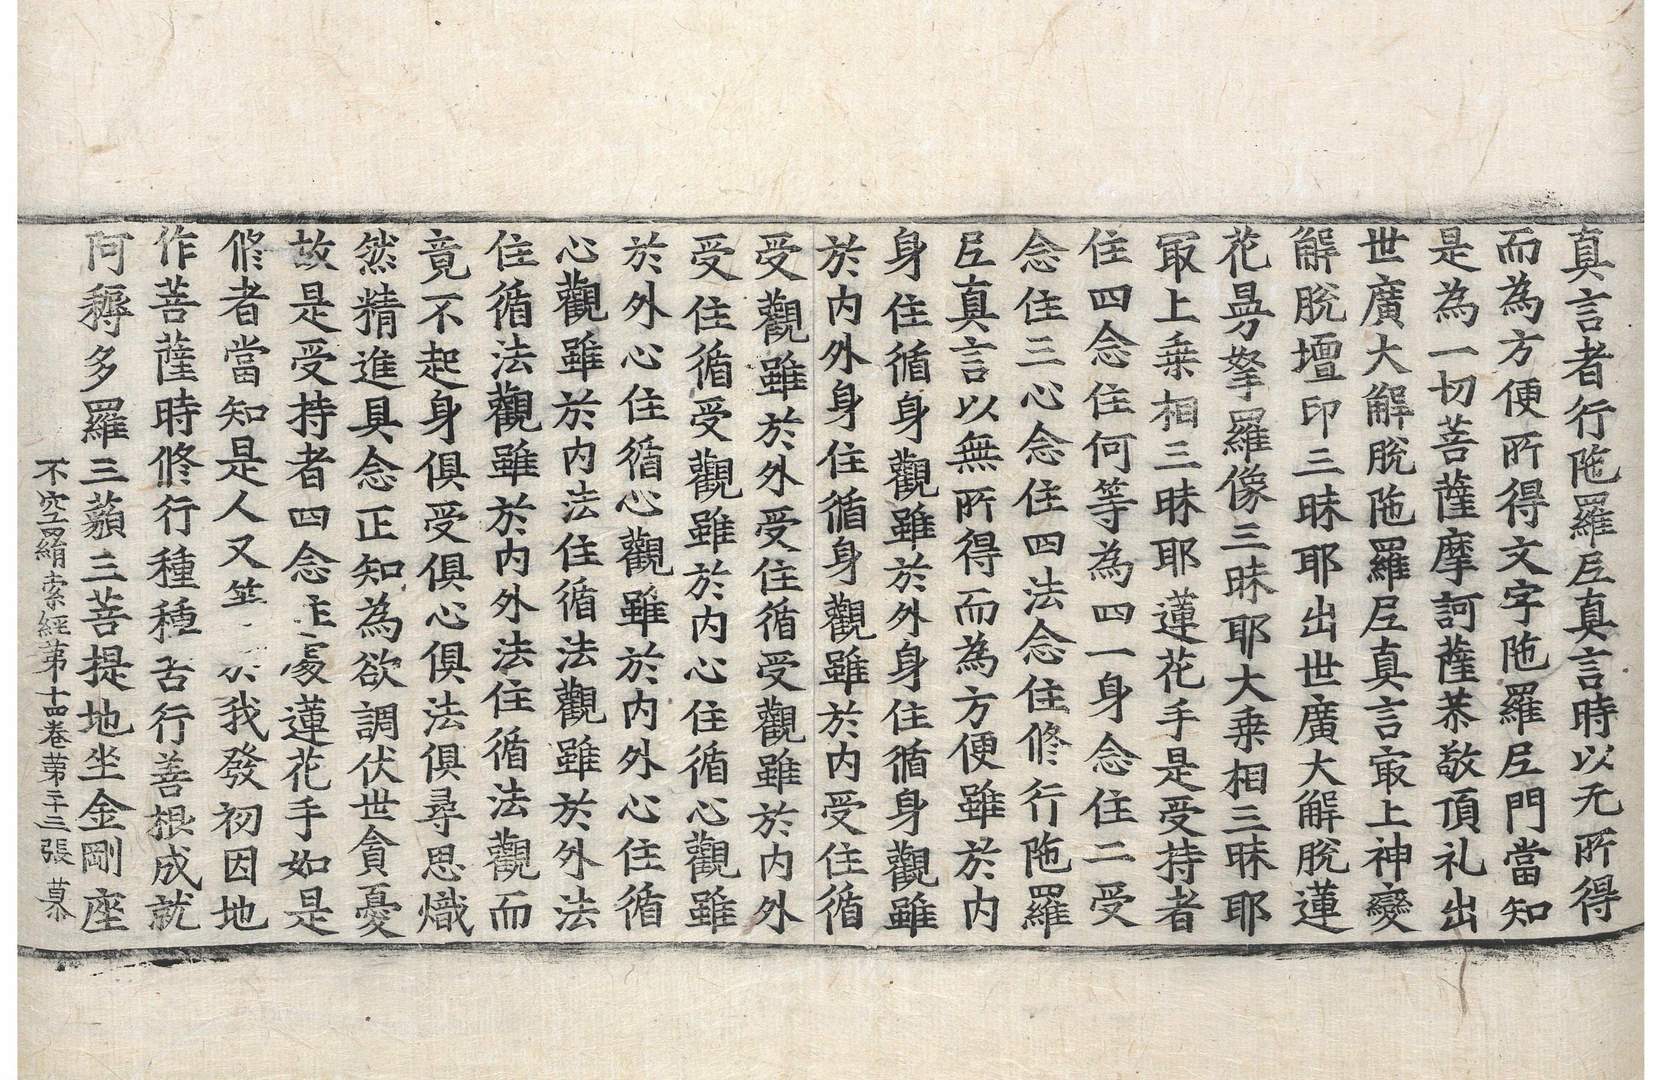 真言者行陁羅尼真言時以无所得
而為方便所得文字陁羅尼門當知
是為一切菩薩摩訶薩恭敬頂礼出
世廣大解脫陁羅尼真言㝡上神變
解脫壇印三昧耶出世廣大解脫蓮
花曼拏羅像三昧耶大乗相三昧耶
㝡上乗相三昧耶蓮花手是受持者
住四念住何等為四一身念住二受
念住三心念住四法念住修行陁羅
尼真言以無所得而為方便雖於内
身住循身觀雖於外身住循身觀雖
於内外身住循身觀雖於内受住循
受觀雖於外受住循受觀雖於内外
受住循受觀雖於内心住循心觀雖
於外心住循心觀雖於内外心住循
心觀雖於内法住循法觀雖於外法
住循法觀雖於内外法住循法觀而
竟不起身俱受俱心俱法俱尋思熾
然精進具念正知為欲調伏世貪憂
故是受持者四念住處蓮花手如是
修者當知是人又於我發初因地
作菩薩時修行種種苦行善根成就
阿耨多羅三藐三菩提地坐金剛座
不空羂索經第十四卷第二十二張 慕